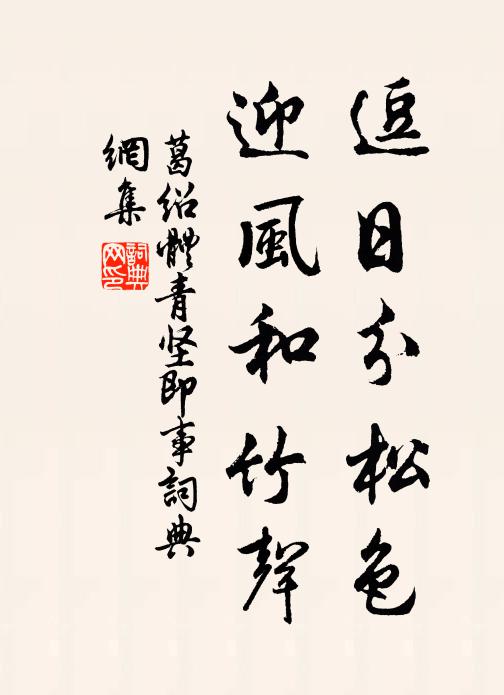 逗日分松色
迎風和竹聲
葛绍體青坚即事詞典
網集
詞典
网印